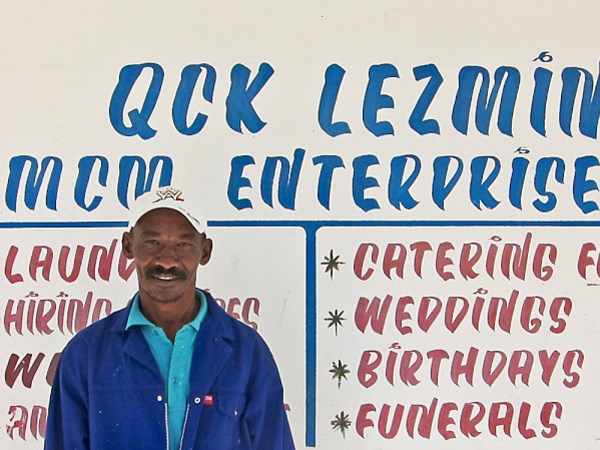 QCK LEZMIN
MCM ENTERPRISE
LAUN
HIRING
CATERING
WEDDINGS
BIRTHDAYS
FUNERALS